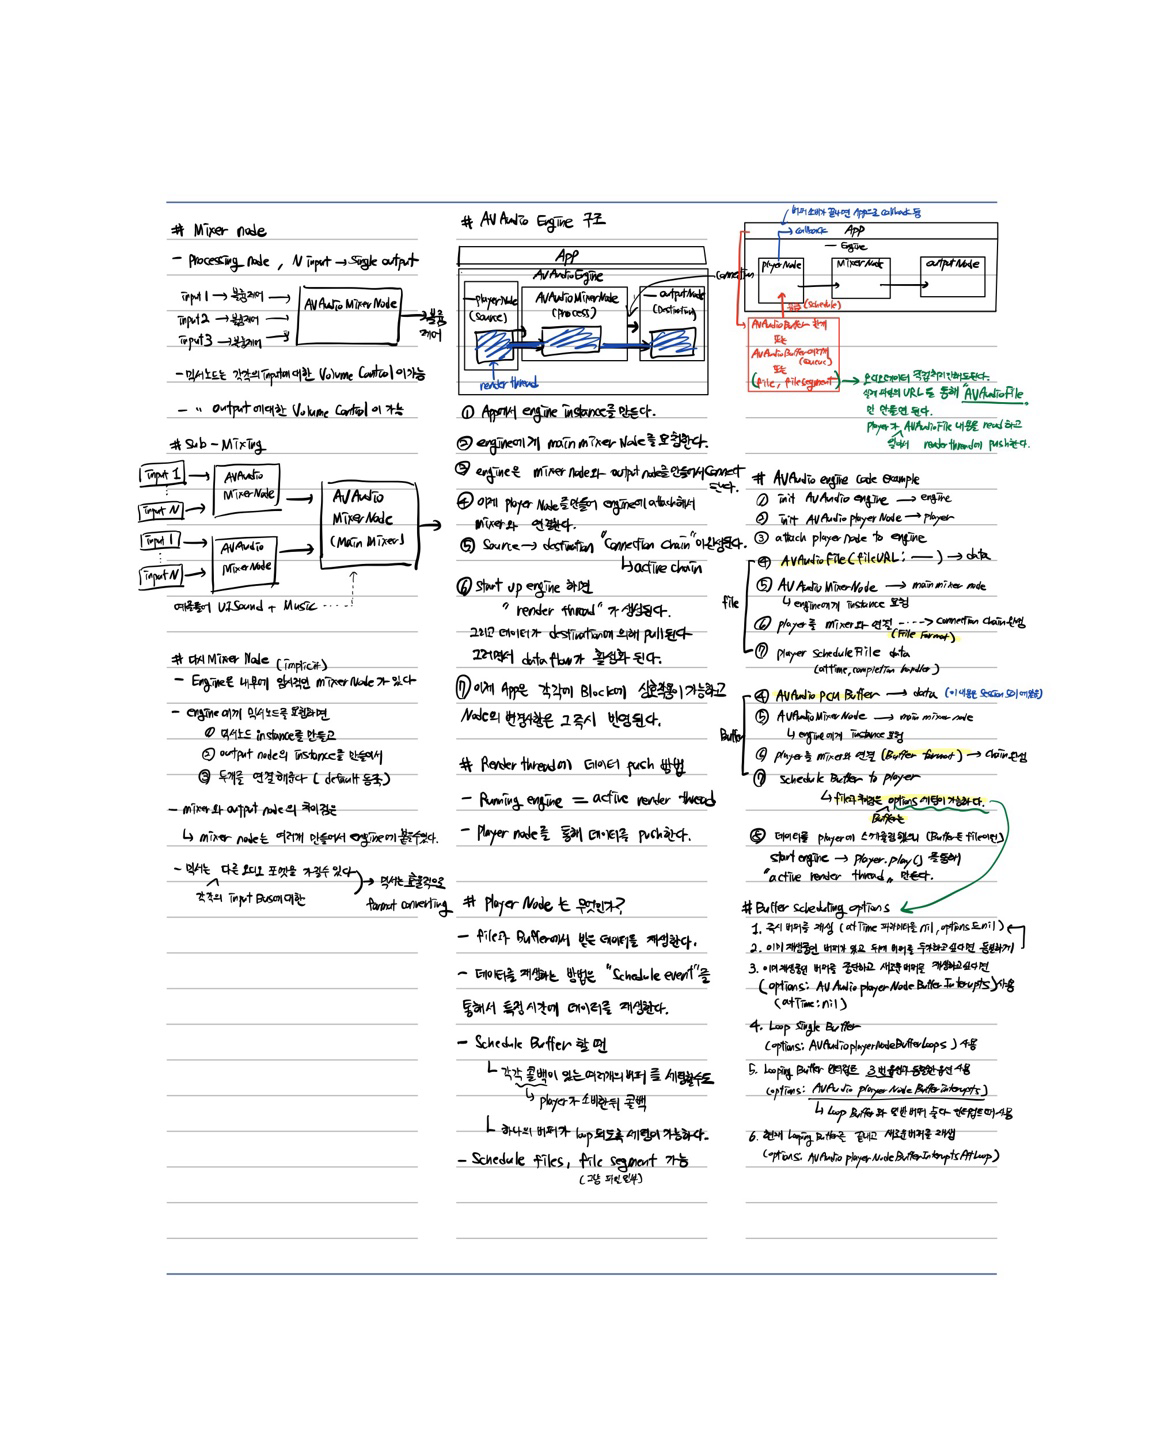 # Mixer node
- Processing node, N input → Single output
input 1 → 볼륨제어 →
input 2 → 볼륨제어 →
input 3 → 볼륨제어 →
AVAudioMixerNode
→ 볼륨
제어
- 믹서노드는 각각의 input에 대한 Volume Control이 가능
- " output에 대한 Volume Control이 가능
# Sub-Mixing
input 1
input N
input 1
input N
AVAudio
MixerNode
AVAudio
MixerNode
AVAudio
MixerNode
(Main Mixer)
예를들어 UISound + Music
# 다시 Mixer Node (implicit)
- Engine은 내부에 암시적인 mixerNode가 있다
- engine에게 믹서노드를 요청하면
① 믹서노드 instance를 만들고
② output node의 instance를 만들어서
③ 두개를 연결해준다 (default 동작)
- mixer와 output node의 차이점은
↳ mixer node는 여러개 만들어서 engine에 붙일수있다.
- 믹서는 다른 오디오 포맷을 가질수 있다
각각의 input Bus에 대한
→ 믹서는 효율적으로
format converting
# AVAudio Engine 구조
App
AVAudioEngine
playerNode
(Source)
AVAudioMixerNode
(Process)
outputNode
(Destination)
Connection
render thread
① App에서 engine instance를 만든다.
② engine에게 main mixer Node를 요청한다.
③ engine은 mixer node와 output node를 만들어서 Connect
한다.
④ 이제 player Node를 만들어 engine에 attach해서
mixer와 연결한다.
⑤ Source → destination "Connection Chain"이 완성된다.
↳ active chain
⑥ Start up engine 하면
"render thread"가 생성된다.
그리고 데이터가 destination에 의해 pull된다
그러면서 data flow가 활성화 된다.
⑦ 이제 App은 각각에 Block에 상호작용이 가능하고
Node의 변경사항은 그 즉시 반영된다.
# Render thread에 데이터 push 방법
- Running engine = active render thread
- Player node를 통해 데이터를 push한다.
# Player Node는 무엇인가?
- file과 Buffer에서 받은 데이터를 재생한다.
- 데이터를 재생하는 방법은 "Schedule event"를
통해서 특정 시간에 데이터를 재생한다.
- Schedule Buffer 할 땐
└ 각각 콜백이 있는 여러개의 버퍼를 세팅할수도
↳ player가 소비한뒤 콜백
└ 하나의 버퍼가 loop되도록 세팅이 가능하다.
- Schedule files, file segment 가능
(그냥 파일 일부)
버퍼 소비가 끝나면 App으로 callback 등
→ callback
App
Engine
playerNode
MixerNode
outputNode
공급 (Schedule)
AVAudioBuffer 한개
또는
AVAudioBuffer 여러개
(queue)
또는
(file, fileSegment)
→ 오디오데이터 직접 쪼개 안해도된다.
식제 파일의 URL을 통해 "AVAudioFile"
만 만들면 된다.
player가 AVAudioFile 내용을 read하고
알아서 render thread에 push한다.
# AVAudio engine code example
① init AVAudio engine → engine
② init AVAudio playerNode → player
③ attach player node to engine
file
④ AVAudioFile (fileURL: ) → data
⑤ AVAudioMixerNode → main mixer node
↳ engine에게 instance 요청
⑥ player를 mixer와 연결 → Connection chain 완성
(File Format)
⑦ player scheduleFile data
(atTime, completion handler)
Buffer
④ AVAudio PCM Buffer → data
⑤ AVAudioMixerNode → main mixer node
↳ engine에게 instance 요청
⑥ player를 mixer와 연결 (Buffer format) → chain 완성
⑦ schedule Buffer to player
↳ file과 차이점은 options 세팅이 가능하다.
Buffer는
⑧ 데이터를 player에 스케줄링했으니 (Buffer든 file이던)
start engine → player.play() 를 통해
"active render thread" 만든다.
# Buffer scheduling options
1. 즉시 버퍼를 재생 (atTime 파라미터을 nil, options도 nil)
2. 이미 재생중인 버퍼가 있고 뒤에 버퍼를 추가하고싶다면 동일하게
3. 이미 재생중인 버퍼를 중단하고 새로운 버퍼를 재생하고싶다면
(options: AVAudioPlayerNodeBufferInterupts) 사용
(atTime: nil)
4. Loop Single Buffer
(options: AVAudioplayerNodeBufferLoops) 사용
5. Looping Buffer 인터럽트 3번 옵션과 동일한 옵션 사용
(options: AVAudio player Node Buffer interupts)
↳ Loop Buffer와 일반 버퍼 둘다 인터럽트때 사용
6. 현재 Looping Buffer를 끝내고 새로운 버퍼를 재생
(options: AVAudioplayerNodeBufferInteruptsAtLoop)